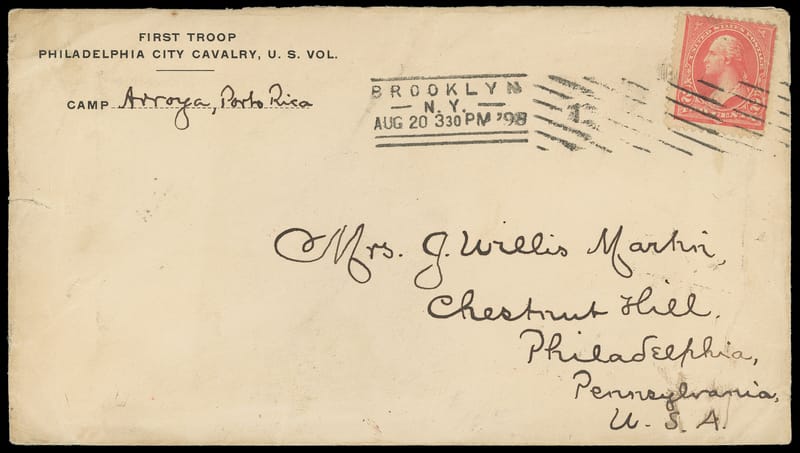 FIRST TROOP
PHILADELPHIA CITY CAVALRY, U. S. VOL.
CAMP Arroya, Porto Rica
BROOKLYN
— N.Y. —
AUG 20 330 PM '98
1
UNITED STATES POSTAGE
Mrs. J. Willis Martin,
Chestnut Hill.
Philadelphia,
Pennsylvania,
U. S. A.